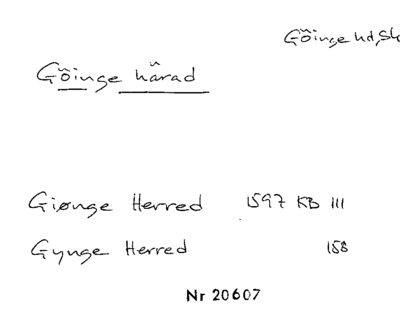 Göinge hd, Sk
Göinge härad
Giønge Herred 1597 KB III
Gynge Herred 158
Nr 20607